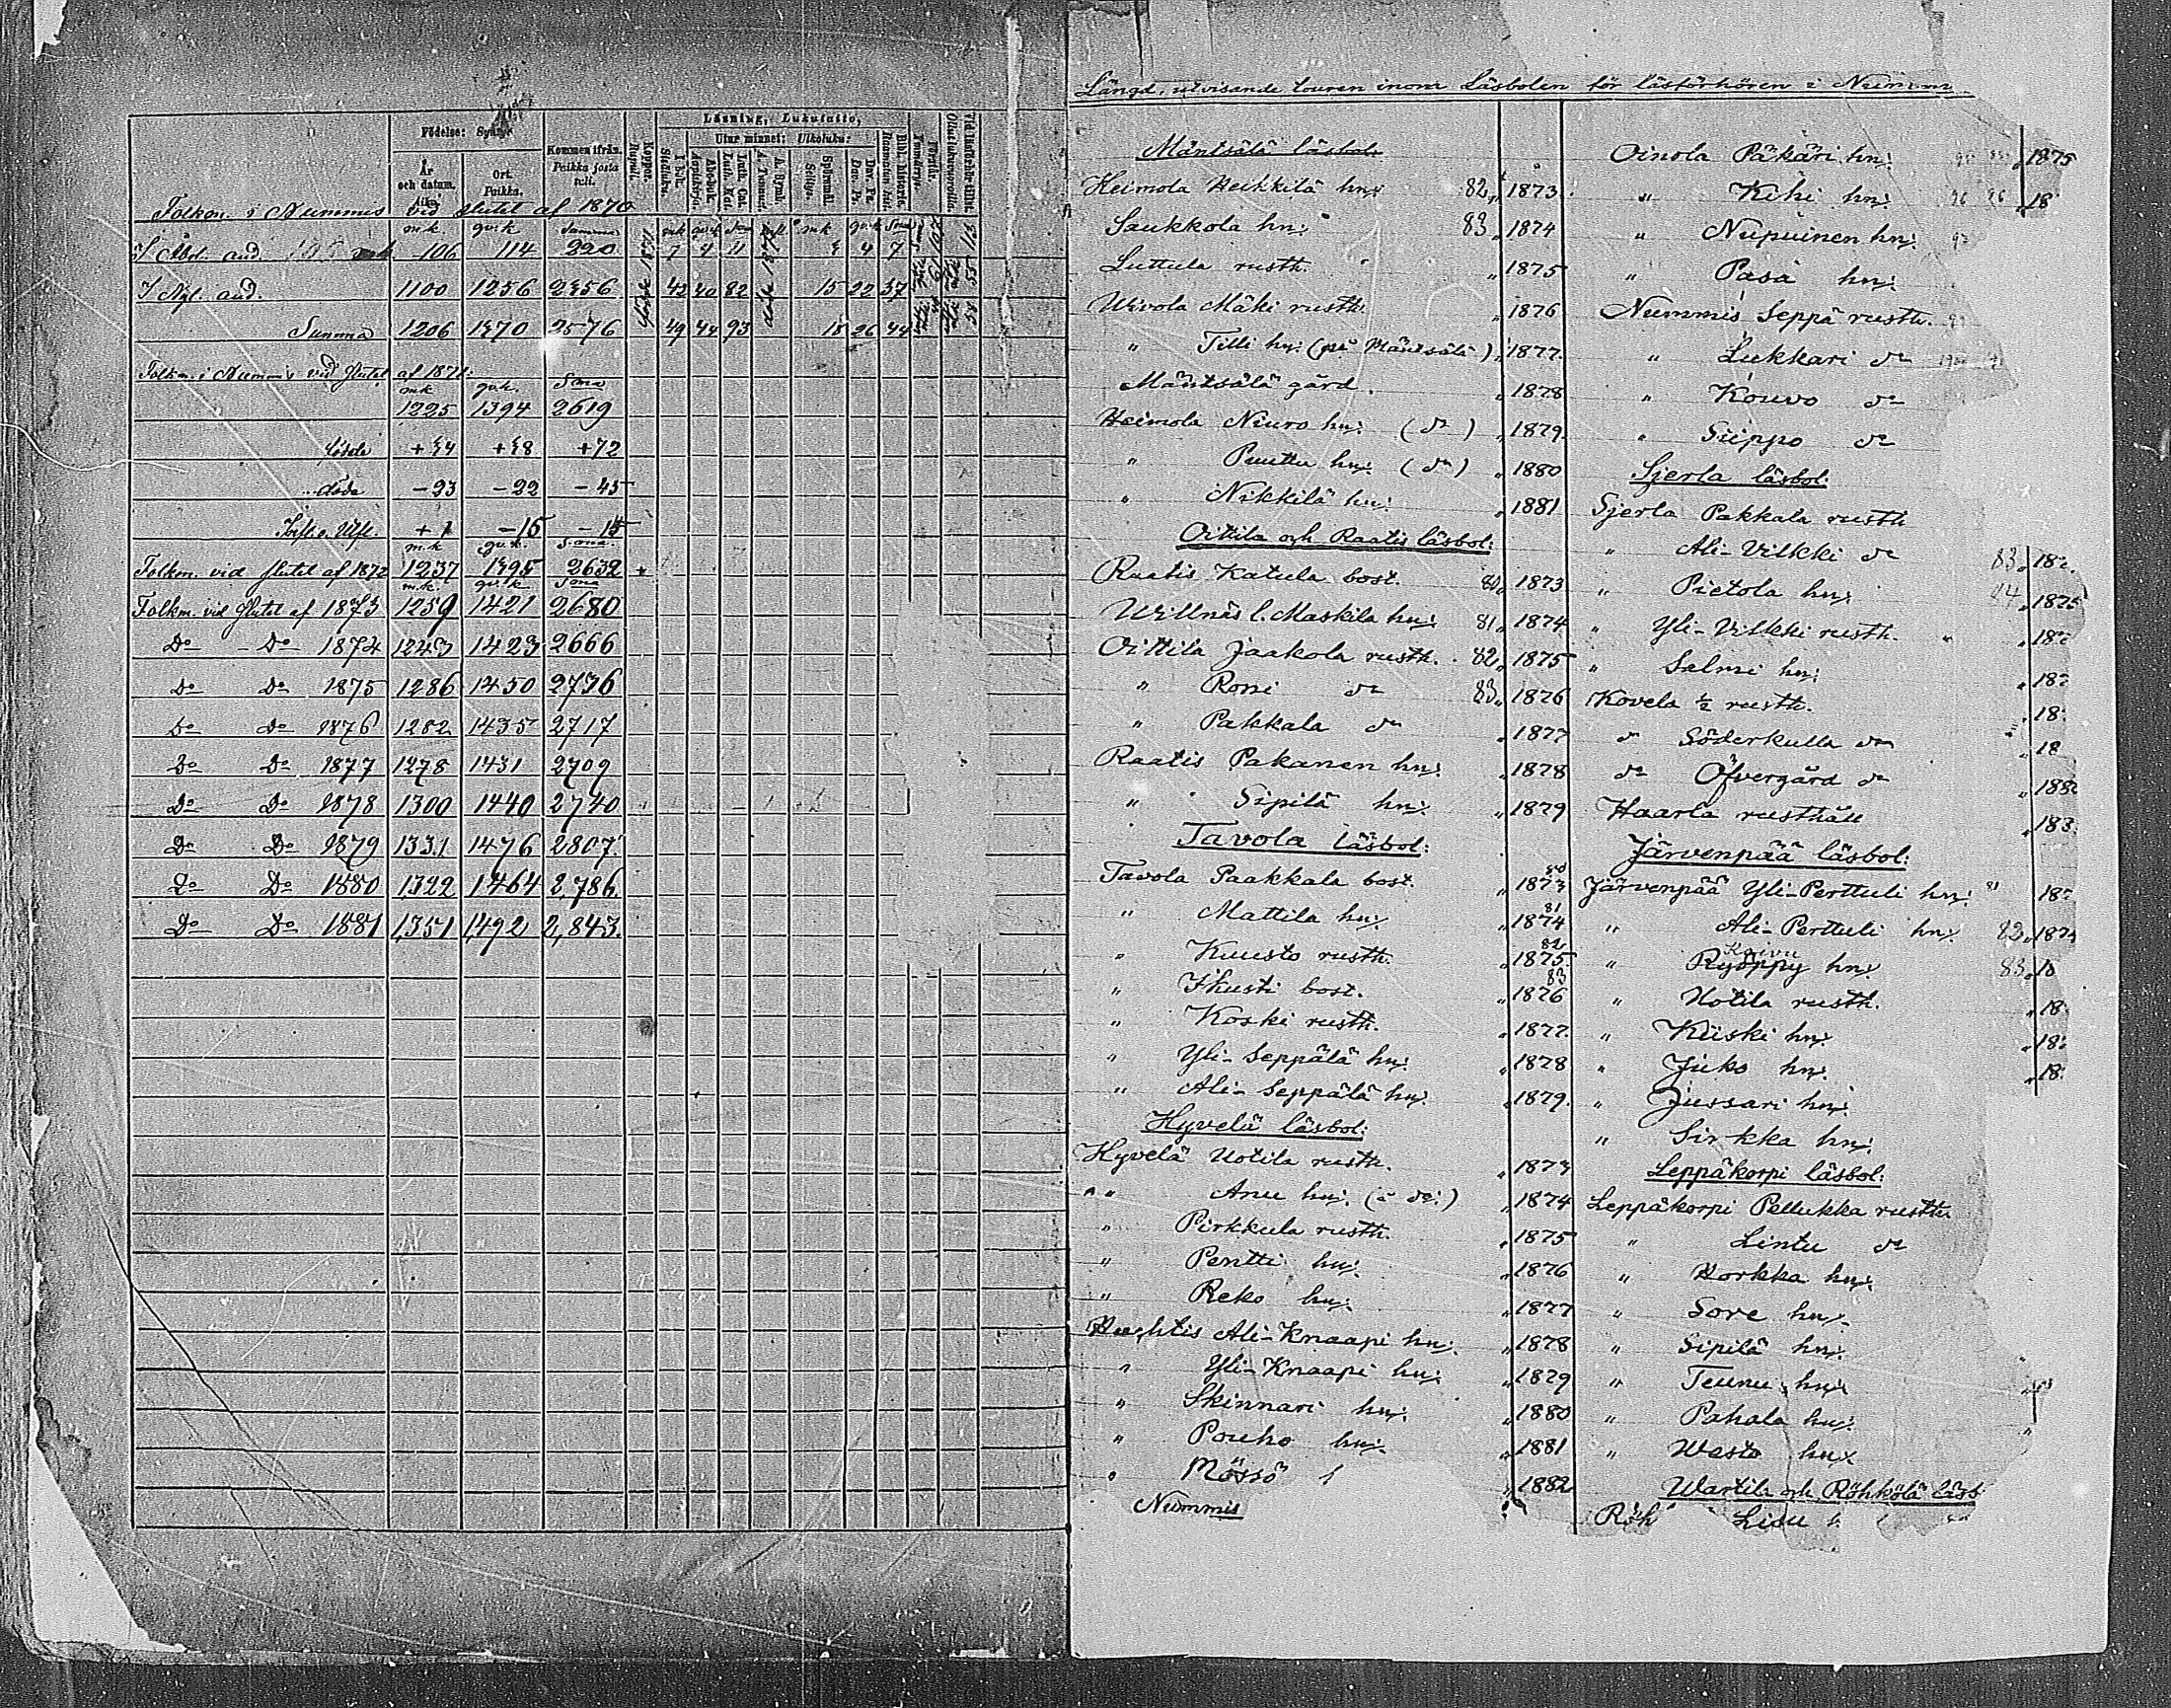 Födelse: Synty:
Kommen ifrån.
Paikka josta tuli.
Koppor.
Rupuli.
Läsning, Lukutaito,
Utur minnet: Ulkoluku:
År och datum.
Aika
Ort.
Paikka.
Folkm. i Nummis vid slutet af 1870
m.k. qv.k. Summa
I Åbol. and. 106 114 220 7 4 11 4 7
I Nyl. and. 1100 1256 2356 42 40 82 15 22 37
Summa 1206 1370 2576 49 44 93 18 26 44
Folkm. i Nummis vid slutet af 1871:
m.k. qv.k. Soma
1225 1394 2619
födde +34 +38 +72
döda -23 -22 -45
+1 -15 -15
m.k. qv.k. Soma
Folkm. vid slutet af 1872 1237 1395 2632
m.k. qv.k. Soma
Folkm. vid slutet af 1873 1259 1421 2680
Do Do 1874 1243 1423 2666
Do Do 1875 1286 1450 2736
Do Do 1876 1282 1435 2717
Do Do 1877 1278 1431 2709
Do Do 1878 1300 1440 2740
Do Do 1879 1331 1476 2807.
Do Do 1880 1322 1464 2,786
Do Do 1881 1,351 1,492 2,843.
Längd, utvisande touren inom Läsbolen för läsförhören i Numm
Mäntsälä läsbol.
Heimola Heikkilä hn: 82 " 1873.
Saukkola hn: 83 " 1874
Luttula rusth. " 1875
Uivola Mäki rusth. " 1876
" Tilli hn: (på Mäntsälä) " 1877.
Mäntsälä gård. " 1878
Heimola Niuro hn: (do) " 1879.
" Puuttu hn: (do) " 1880
" Nikkilä hn: " 1881
Oittila och Raatis läsbol:
Raatis Katula bost. 80 " 1873
Willnäs l. Maskila hn: 81 " 1874
Oittila Jaakola rusth. 82 " 1875
" Rossi do 83 " 1876
" Pakkala do " 1877
Raatis Pakanen hn: " 1878
" Sipilä hn: " 1879
Tavola läsbol:
Tavola Paakkala bost. " 1873 80
" Mattila hn: " 1874 81
" Kuusto rusth. " 1875 82
" Ihusti bost. " 1876 83
" Koski rusth. " 1877.
" Yli-Seppälä hn: " 1878
" Ali-Seppälä hn: " 1879.
Hyvelä läsbol:
Hyvelä Uotila rusth. " 1873
" Anu hn: (å do:) " 1874
" Pirkkula rusth. " 1875
" Pentti hn: " 1876
" Reko hn: " 1877
Huhtis Ali-Knaapi hn: " 1878
" Yli-Knaapi hn: " 1879
" Skinnari hn: " 1880
" Pouho hn: " 1881
" Mössö " 1882
Nummis
Oinola Päkäri hn: " 1875
" Kihi hn: " 18
" Nupuinen hn:
" Pasa hn:
Nummis Seppä rusth.
" Lukkari do
" Kouvo do
" Siippo do
Sjerla läsbol:
Sjerla Pakkala rusth
" Ali-Vilkki do 83 " 18
" Pietola hn: 84 " 1875
" Yli-Vilkki rusth. " 187
" Salmi hn: " 187
Kovela ½ rusth. " 18
do Söderkulla do " 18
do Öfvergård do " 188
Haarla rusthåll " 183
Järvenpää läsbol:
Järvenpää Yli-Perttuli hn: 81 187
" Ali-Perttuli hn: 82 " 187
Koivu
" Ryöppy hn: 83 " 18
" Uotila rusth. " 18
" Kiiski hn: " 18
" Juko hn: " 18
" Jussari hn:
" Sirkka hn:
Leppäkorpi läsbol:
Leppäkorpi Pellukka rusth
" Lintu do
" Horkka hn:
" Sore hn:
" Sipilä hn:
" Teunu hn:
" Pahala hn:
" Westo hn:
Wartila och Röhkölä läsb
Röh Lisu